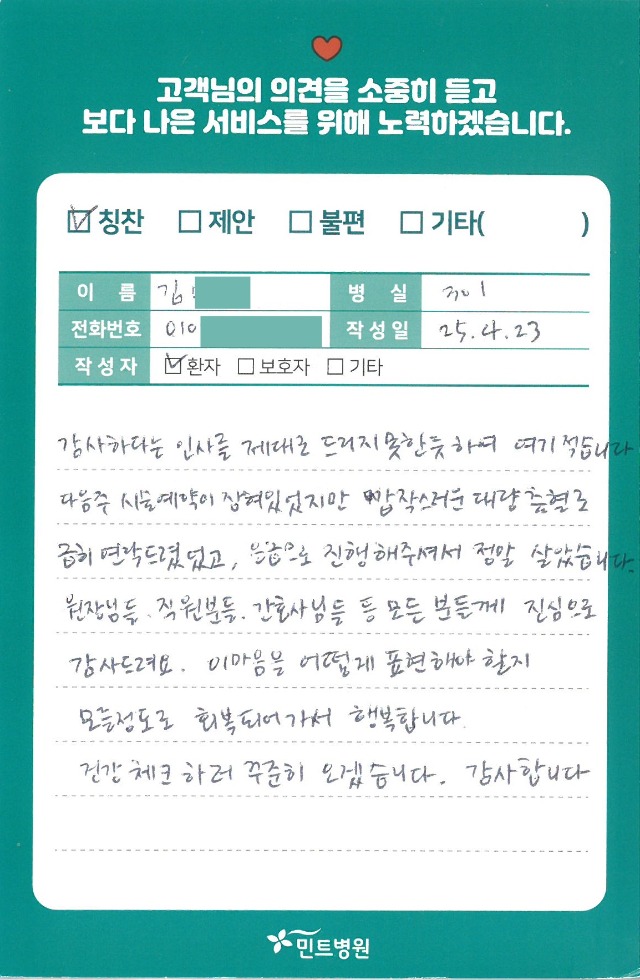 고객님의 의견을 소중히 듣고
보다 나은 서비스를 위해 노력하겠습니다.
☑ 칭찬 ☐ 제안 ☐ 불편 ☐ 기타( )
이 름 김 병 실 301
전화번호 010 작성일 25.4.23
작성자 ☑ 환자 ☐ 보호자 ☐ 기타
감사하다는 인사를 제대로 드리지못한듯하여 여기적습니다
다음주 시술예약이 잡혀있었지만 갑작스러운 대량출혈로
급히 연락드렸었고, 응급으로 진행해주셔서 정말 살았습니다.
원장님들, 직원분들, 간호사님들 등 모든 분들께 진심으로
감사드려요. 이마음을 어떻게 표현해야 할지
모를정도로 회복되어가서 행복합니다.
건강체크 하러 꾸준히 오겠습니다. 감사합니다
민트병원